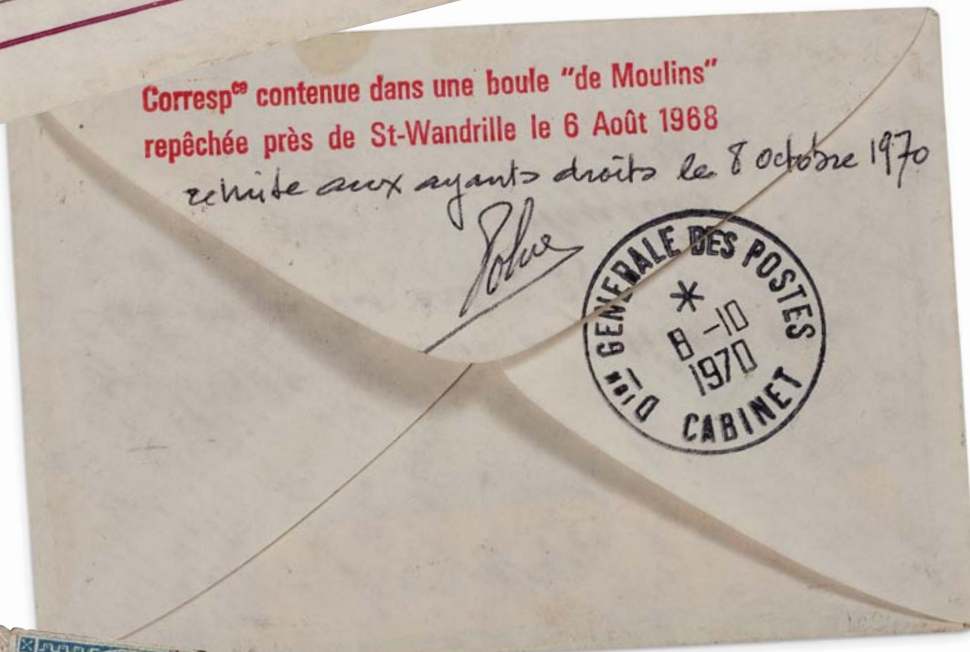 Corresp^ce contenue dans une boule "de Moulins"
repêchée près de St-Wandrille le 6 Août 1968
remise aux ayants droits le 8 octobre 1970
D^ion GENERALE DES POSTES
*
8 -10
1970
CABINET